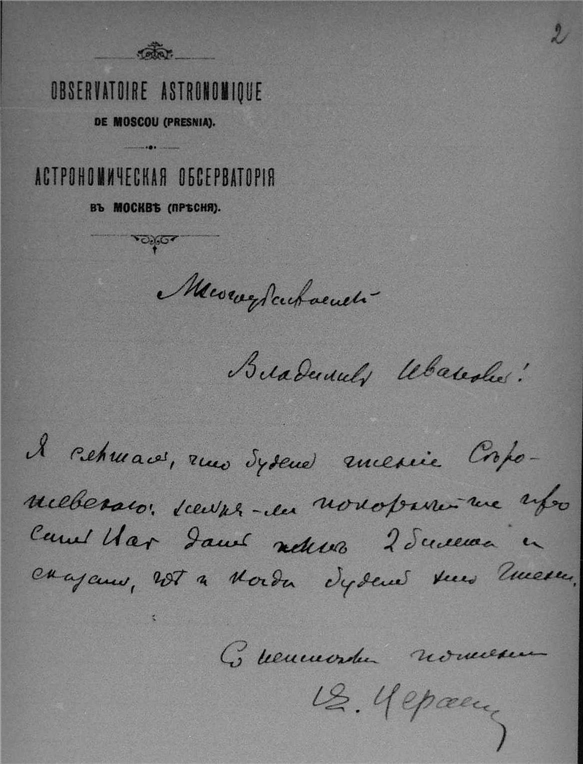 2
OBSERVATOIRE ASTRONOMIQUE
DE MOSCOU (PRESNIA).
АСТРОНОМИЧЕСКАЯ ОБСЕРВАТОРІЯ
ВЪ МОСКВѢ (ПРѢСНЯ).
Многоуважаемый
Владиміръ Ивановичъ!
Я слышалъ, что будетъ чтеніе
нельзя-ли покорнѣйше про
сить Васъ дать мнѣ 2 билета и
сказать, гдѣ и когда будетъ это чтеніе.
Съ истиннымъ почтеніемъ
В. Цераскій